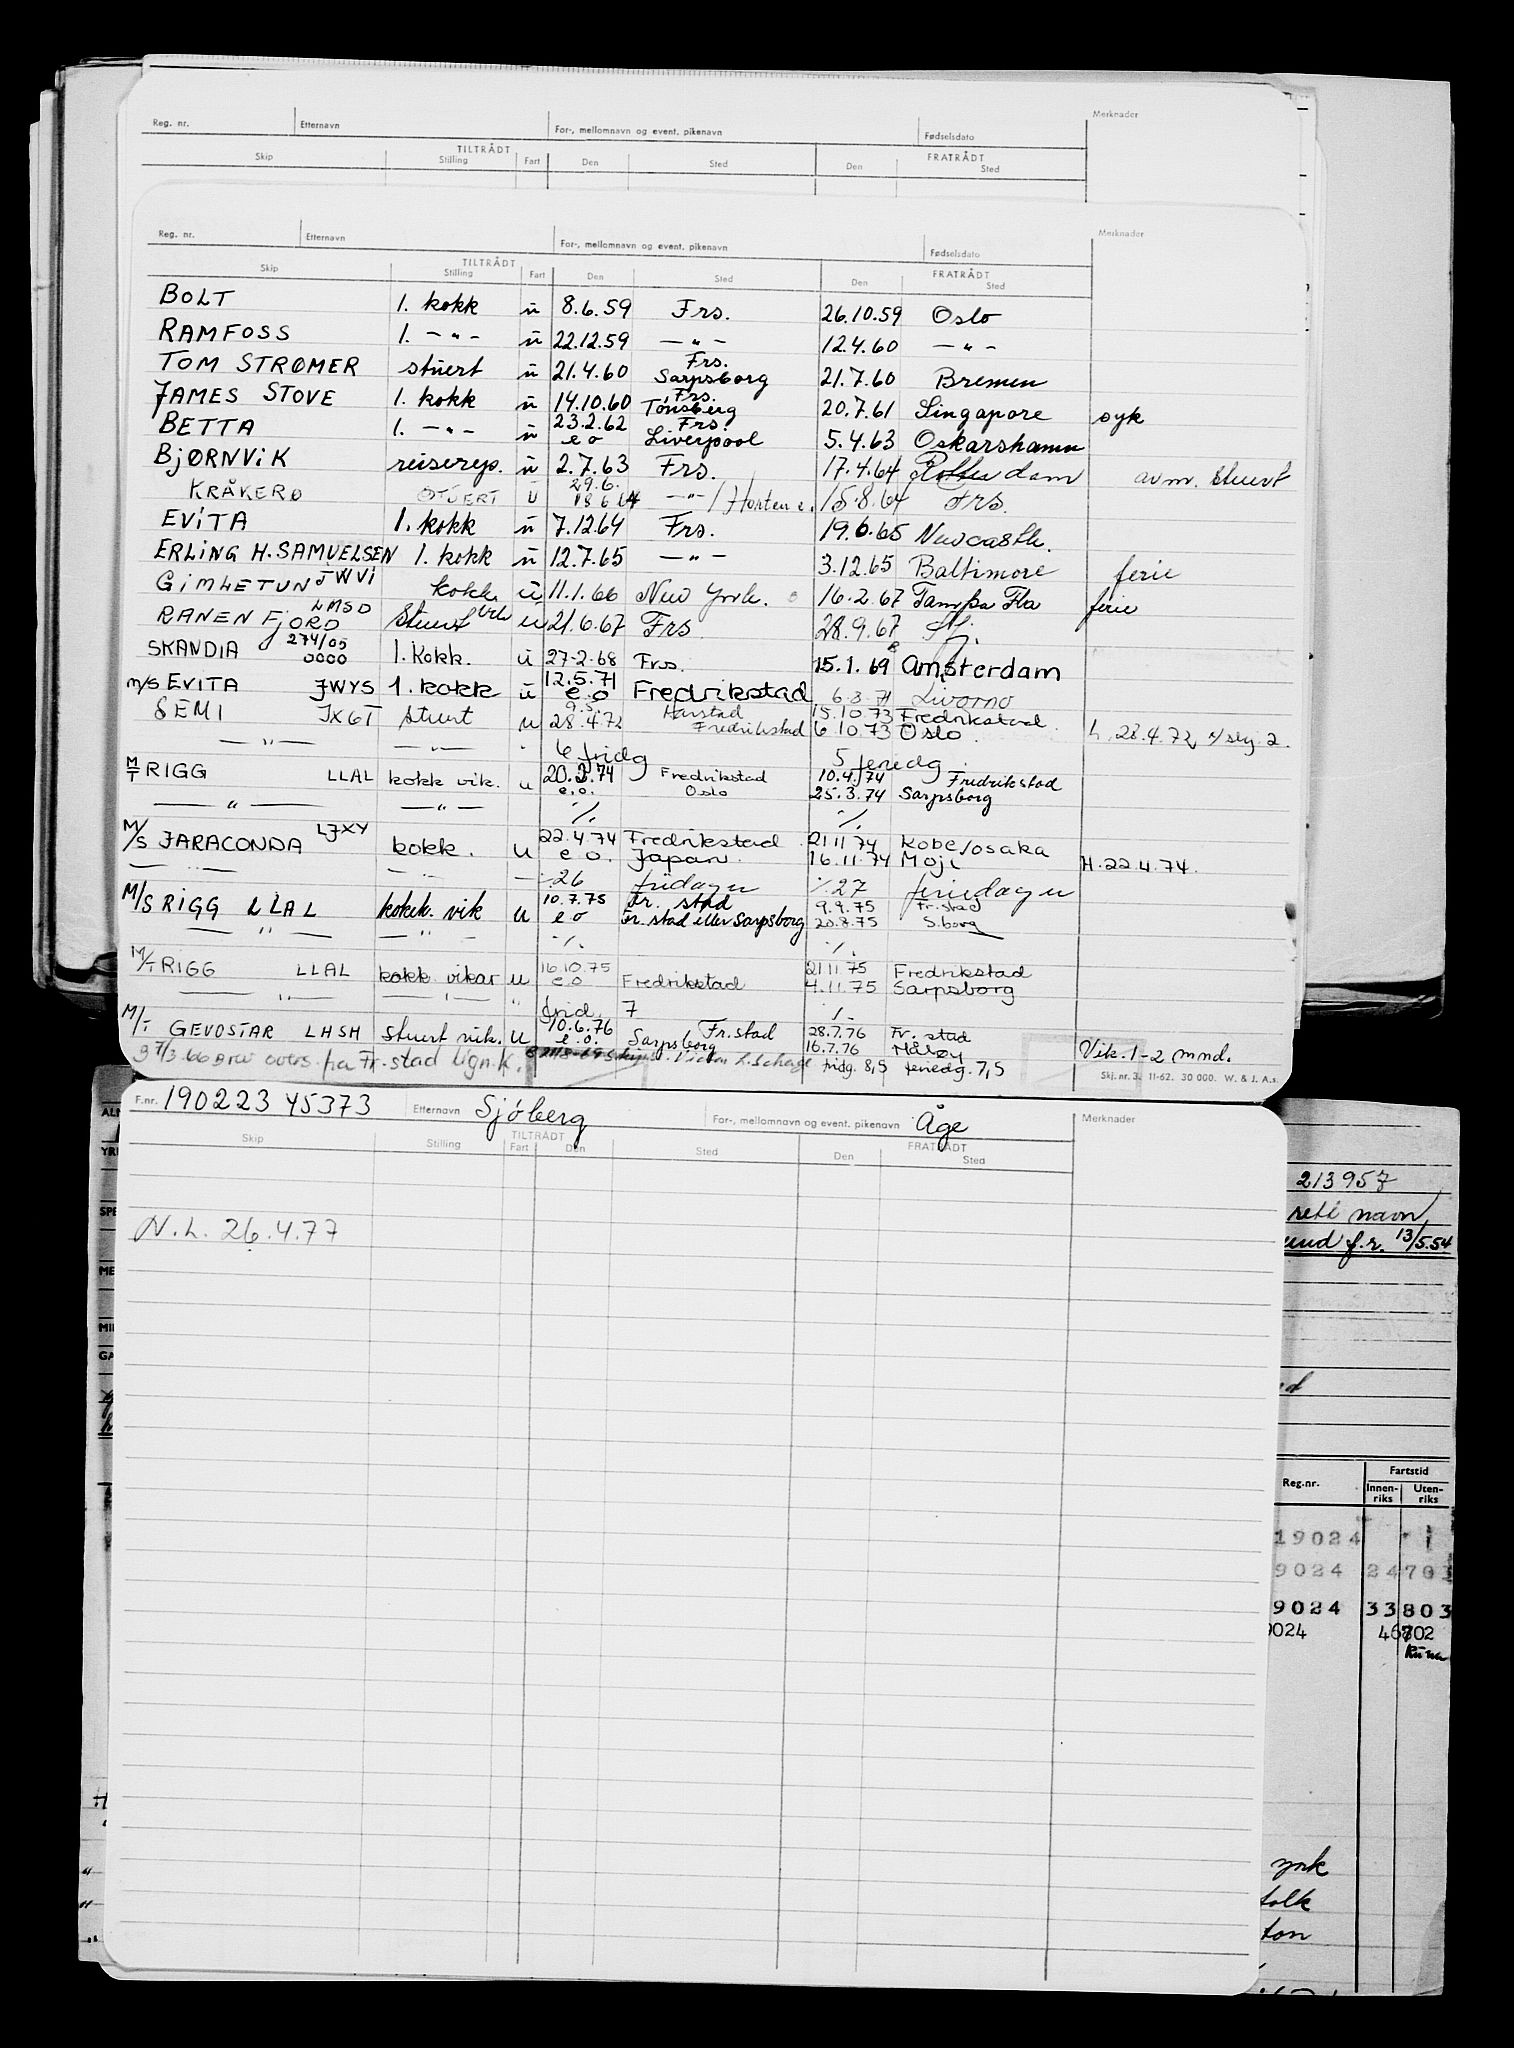 Reg. nr. Etternavn For-, mellomnavn og event. pikenavn Fødselsdato Merknader
TILTRÅDT FRATRÅDT
Skip Stilling Fart Den Sted Den Sted
Reg. nr. Etternavn For-, mellomnavn og event. pikenavn Fødselsdato Merknader
TILTRÅDT FRATRÅDT
Skip Stilling Fart Den Sted Den Sted
BOLT 1. kokk u 8.6.59 Frs. 26.10.59 Oslo
RAMFOSS 1. -"- u 22.12.59 -"- 12.4.60 -"-
TOM STRØMER stuert u 21.4.60 Frs. Sarpsborg 21.7.60 Bremen
JAMES STOVE 1. kokk u 14.10.60 Frs. Tønsberg 20.7.61 Singapore syk
BETTA 1. -"- u 23.2.62 e o Frs. Liverpool 5.4.63 Oskarshamn
BJØRNVIK reiserep. u 2.7.63 Frs. 17.4.64 Rotterdam avm. Stuert
KRÅKERØ STUERT u 29.6. 18 6 64 -"- / Horten e. 15.8.64 Frs.
EVITA 1. kokk u 7.12.64 Frs. 19.6.65 Newcastle.
ERLING H. SAMUELSEN 1. kokk u 12.7.65 -"- 3.12.65 Baltimore ferie
GIMLETUN JWVI kokk u 11.1.66 New York. 16.2.67 Tampa Fla ferie
RANENFJORD LMSD Stuert vik u 21.6.67 Frs 28.9.67
SKANDIA 274/05 0000 1. Kokk. u 27-2.68 Frs. 15.1.69 Amsterdam
m/s EVITA JWYS 1. kokk u 12.5.71 e.o Fredrikstad 6.8.71 Livorno
SEMI JXGT Stuert u 9.5. 28.4.72 Harstad Fredrikstad 15.10.73 Fredrikstad 6.10.73 Oslo. h. 28.4.72
-"- -"- 6 fridg 5 feriedg.
M/T RIGG LLAL kokk vik. u 20.3.74 e.o. Fredrikstad Oslo 10.4.74 Fredrikstad 25.3.74 Sarpsborg
-"- -"- ./. ./.
M/S JARACONDA LJXY kokk. u 22.4.74 e o. Fredrikstad Japan. 21.11.74 Kobe/Osaka 16.11.74 Moji H. 22.4.74.
-"- -"- ./. 26 fridager ./. 27 feriedager
M/S RIGG LLAL kokk. vik u 10.7.75 e o Fr. stad Fr. stad eller Sarpsborg 9.9.75 Fr. stad 20.8.75 S.borg
-"- -"- ./. ./.
M/T RIGG LLAL kokk vikar u 16.10.75 e o Fredrikstad 21.11.75 Fredrikstad 4.11.75 Sarpsborg
-"- -"- " frid. 7 ./.
M/T GEVOSTAR LASH Stuert vik. u 10.6.76 e.o. Fr.stad Sarpsborg 28.7.76 Fr. stad 16.7.76 Måløy Vik. 1-2 mnd.
fra Fr. stad fridg. 8,5 feriedg. 7,5
Skj. nr. 3. 11-62. 30 000. W. & J. A.s.
F.nr. 190223 45373 Etternavn Sjøberg For-, mellomnavn og event. pikenavn Åge Merknader
TILTRÅDT FRATRÅDT
Skip Stilling Fart Den Sted Den Sted
N.L. 26.4.77
213957
rett navn,
f.r. 13/5.54
Reg.nr. Fartstid
Innen-riks Uten-riks
19024
9024 24703
9024 33803
9024
york
folk
ton